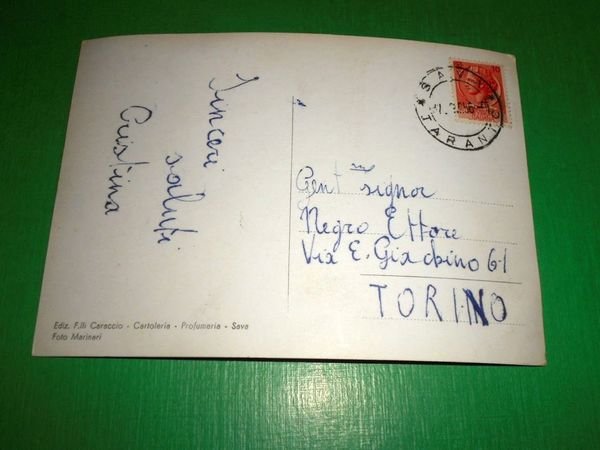 Sinceri
saluti
Cristina
10
* SAVA *
TARANTO
Gent mo signor
Negro Ettore
Via E. Giachino 61
TORINO
Ediz. F.lli Caraccio - Cartoleria - Profumeria - Sava
Foto Marinari